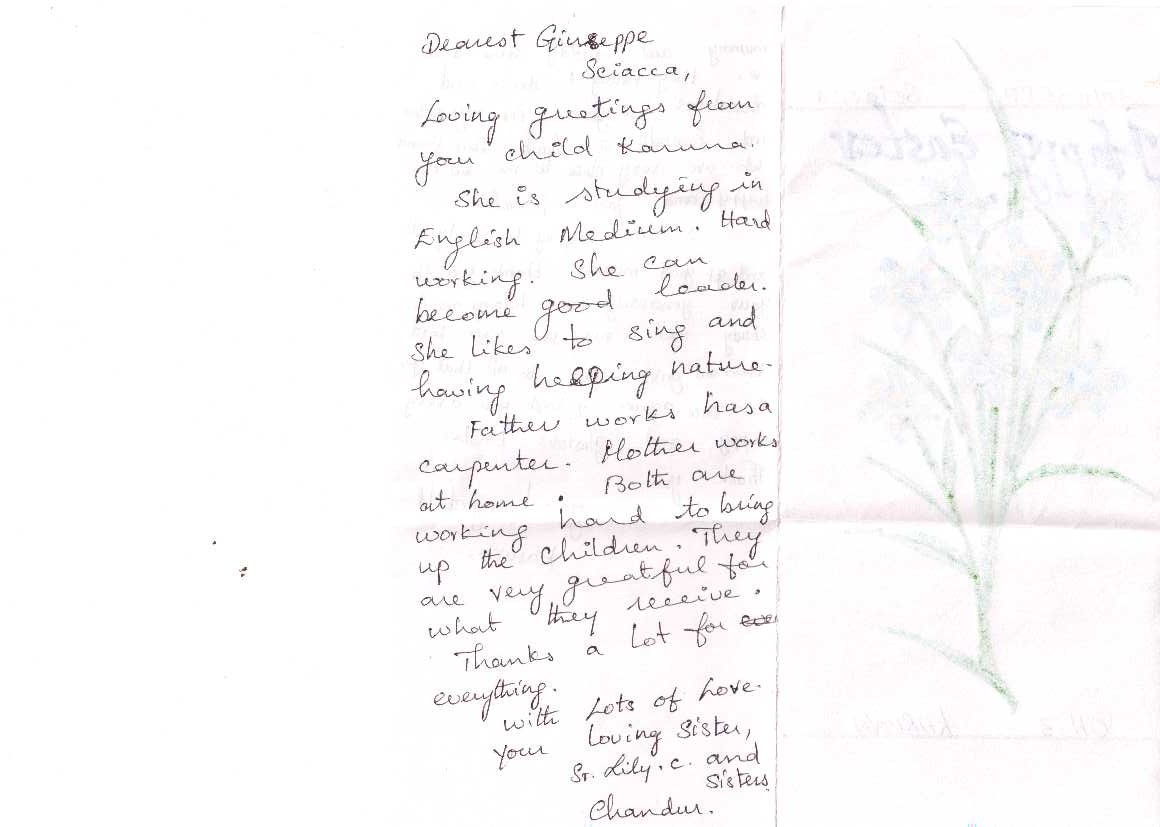 Dearest Giuseppe
Sciacca,
Loving greetings from
your child Karuna.
She is studying in
English Medium. Hard
working. She can
become good leader.
She likes to sing and
having helping nature.
Father works has a
carpenter. Mother works
at home. Both are
working hard to bring
up the children. They
are very greatful for
what they receive.
Thanks a lot for
everything.
with Lots of Love.
Your loving Sister,
Sr. Lily. C. and
Sisters
Chandur.
Happy Easter